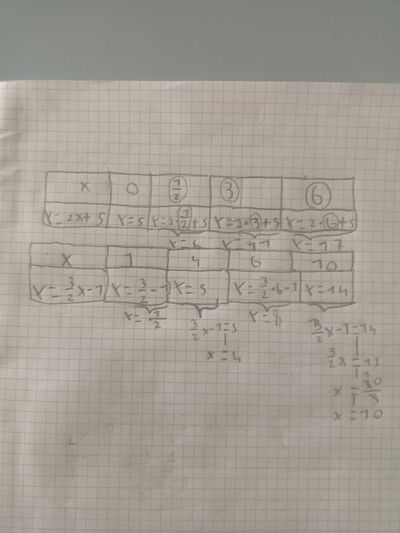 x 0 1/2 3 6
Y=2x+5 Y=5 Y=2·1/2+5 Y=2·3+5 Y=2·6+5
Y=6 Y=11 Y=17
x 1 4 6 10
Y=3/2x-1 Y=3/2-1 Y=5 Y=3/2·6-1 Y=14
Y=1/2 3/2x-1=5 Y=8 3/2x-1=14
x=4 3/2x=15
x=30/3
x=10